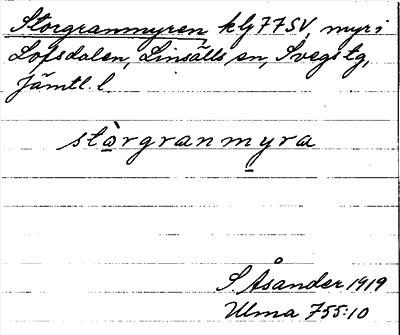 Storgranmyren, klJ 77SV, myr i
Lofsdalen, Linsälls sn, Svegs tg,
Jämtl. l.
stòrgranmyra
S. Åsander 1919
Ulma 755:10